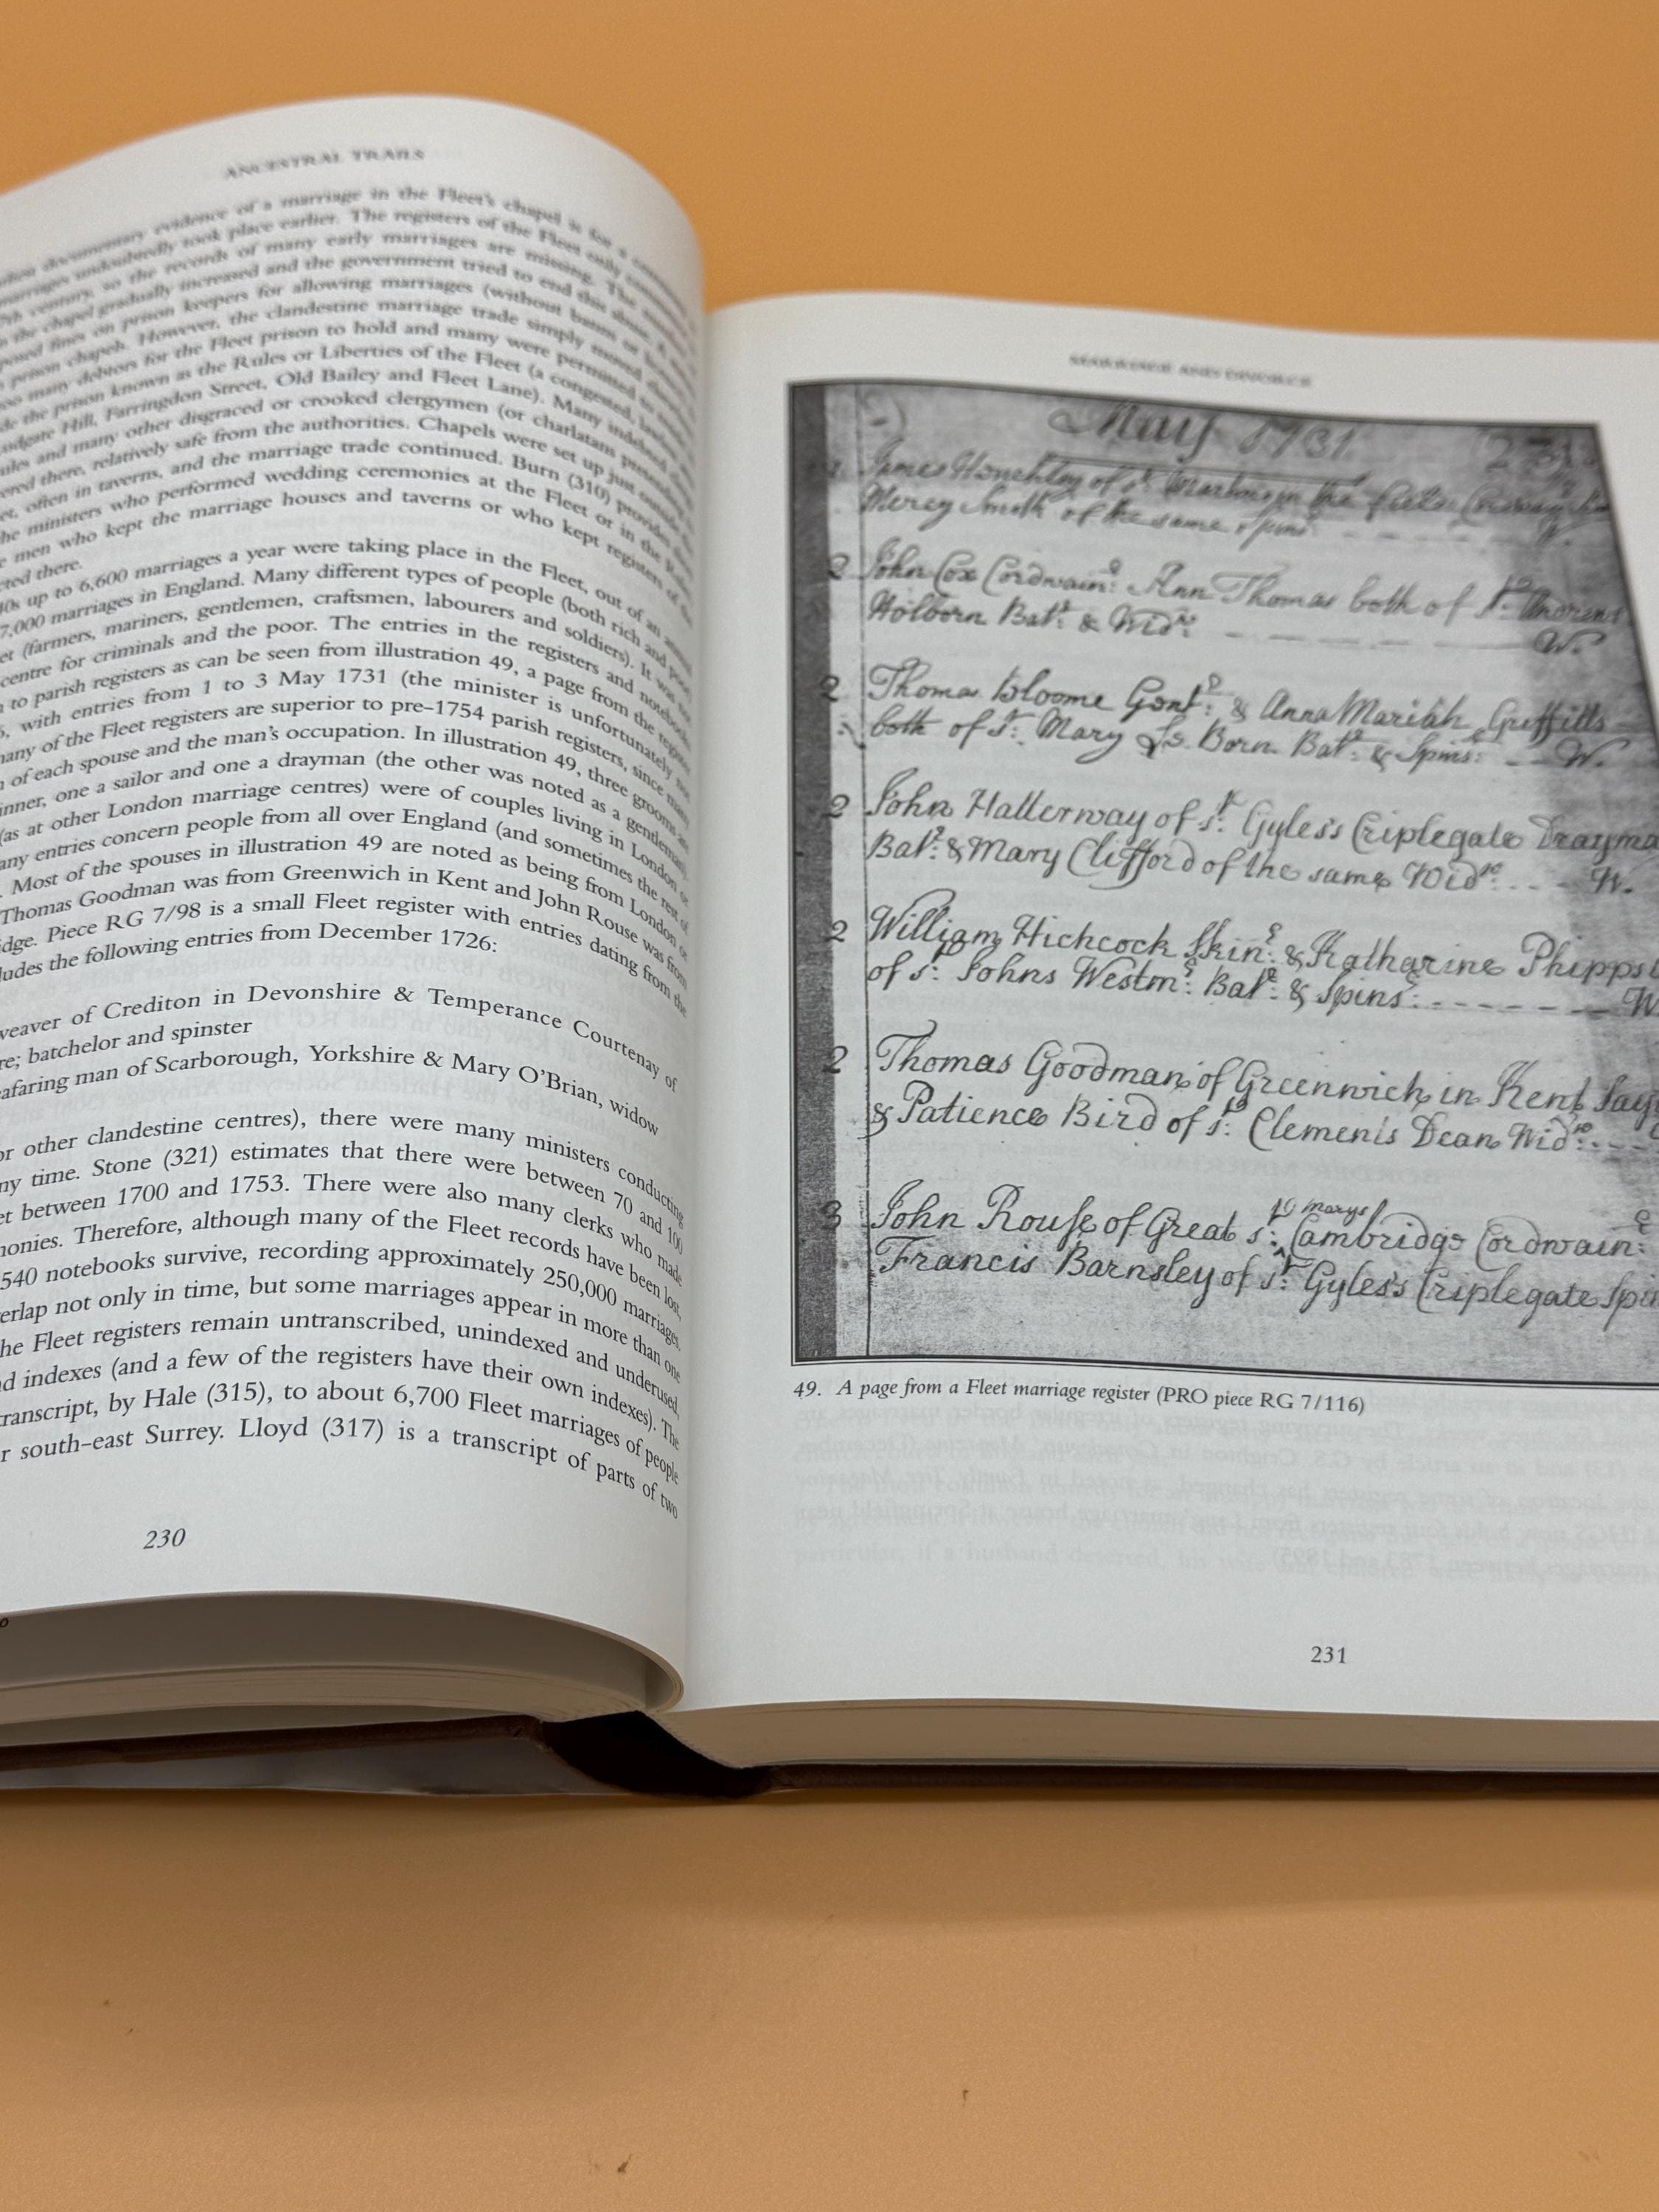 ANCESTRAL TRAILS
documentary evidence of a marriage in the Fleet's chapel is for a
marriages undoubtedly took place earlier. The registers of the Fleet only
century, so the records of many early marriages are missing. The
the chapel gradually increased and the government tried to end this abuse.
fines on prison keepers for allowing marriages (without banns or
prison chapel. However, the clandestine marriage trade simply moved
too many debtors for the Fleet prison to hold and many were permitted to
the prison known as the Rules or Liberties of the Fleet (a congested,
Hill, Farringdon Street, Old Bailey and Fleet Lane). Many indebted
and many other disgraced or crooked clergymen (or charlatans pretending
there, relatively safe from the authorities. Chapels were set up just outside
often in taverns, and the marriage trade continued. Burn (310) provides
ministers who performed wedding ceremonies at the Fleet or in the Rules
men who kept the marriage houses and taverns or who kept registers of the
there.
up to 6,600 marriages a year were taking place in the Fleet, out of an annual
7,000 marriages in England. Many different types of people (both rich and poor)
(farmers, mariners, gentlemen, craftsmen, labourers and soldiers). It was
centre for criminals and the poor. The entries in the registers and notebooks
to parish registers as can be seen from illustration 49, a page from the register
with entries from 1 to 3 May 1731 (the minister is unfortunately not
many of the Fleet registers are superior to pre-1754 parish registers, since many
of each spouse and the man's occupation. In illustration 49, three grooms are
one a sailor and one a drayman (the other was noted as a gentleman).
(as at other London marriage centres) were of couples living in London or
many entries concern people from all over England (and sometimes the rest of
. Most of the spouses in illustration 49 are noted as being from London or
Thomas Goodman was from Greenwich in Kent and John Rouse was from
idge. Piece RG 7/98 is a small Fleet register with entries dating from the
ludes the following entries from December 1726:
weaver of Crediton in Devonshire & Temperance Courtenay of
re; batchelor and spinster
afaring man of Scarborough, Yorkshire & Mary O'Brian, widow
or other clandestine centres), there were many ministers conducting
ny time. Stone (321) estimates that there were between 70 and 100
et between 1700 and 1753. There were also many clerks who made
monies. Therefore, although many of the Fleet records have been lost,
540 notebooks survive, recording approximately 250,000 marriages.
verlap not only in time, but some marriages appear in more than one
he Fleet registers remain untranscribed, unindexed and underused,
nd indexes (and a few of the registers have their own indexes). The
transcript, by Hale (315), to about 6,700 Fleet marriages of people
r south-east Surrey. Lloyd (317) is a transcript of parts of two
230
MARRIAGE AND DIVORCE
May 1731
James of St. Martins in the fields
Mercy Smith of the same spin W.
2 John Cox Cordwainr: Ann Thomas both of St. Andrews
Holborn Batr: & Widw: W.
2 Thomas Bloome Gent: & Anna Mariah Griffitts
both of St: Mary Le Born Batr: & Spins: W.
2 John Hallerway of St: Gyles's Criplegate Drayma
Batr: & Mary Clifford of the same Widw: W.
2 William Hichcock Skinr: & Katharine Phipps
of St: Johns Westmr: Batr: & Spins: W.
2 Thomas Goodman of Greenwich in Kent
& Patience Bird of St: Clements Dean Widw:
3 John Rouse of Great St: marys Cambridge Cordwainr:
Francis Barnsley of St: Gyles's Criplegate Spi
49. A page from a Fleet marriage register (PRO piece RG 7/116)
231